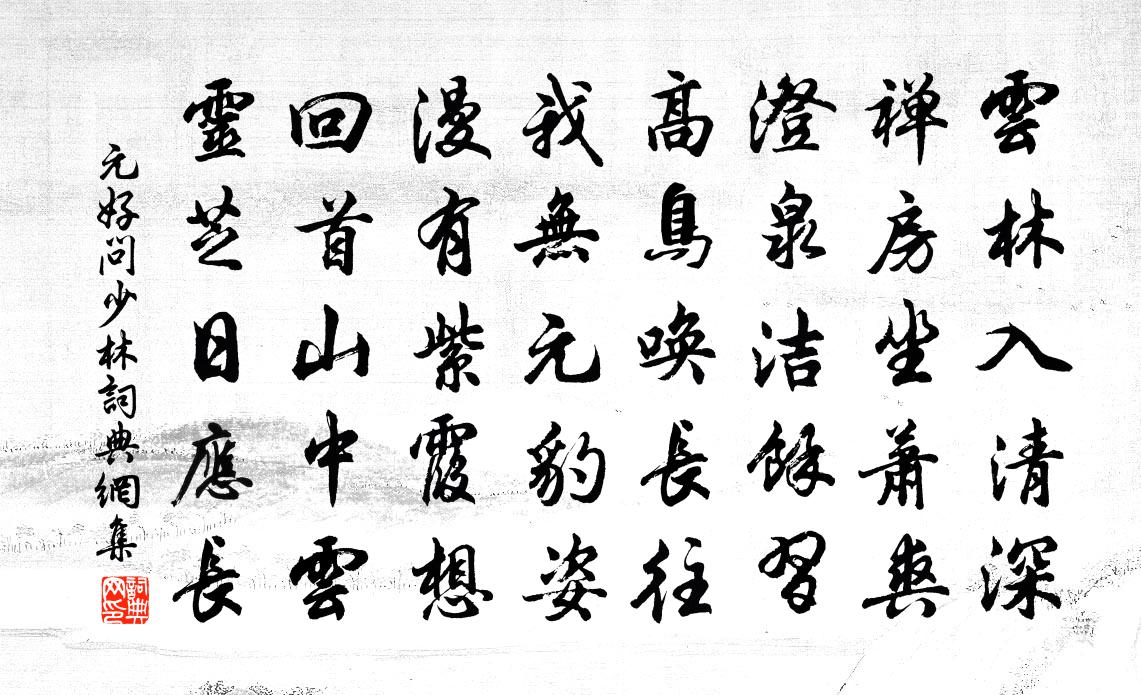 雲林入清深
禅房坐蕭爽
澄泉洁餘習
高鳥唤長往
我無元豹姿
漫有紫霞想
回首山中雲
靈芝日應長
元好问少林詞典網集
詞典网印